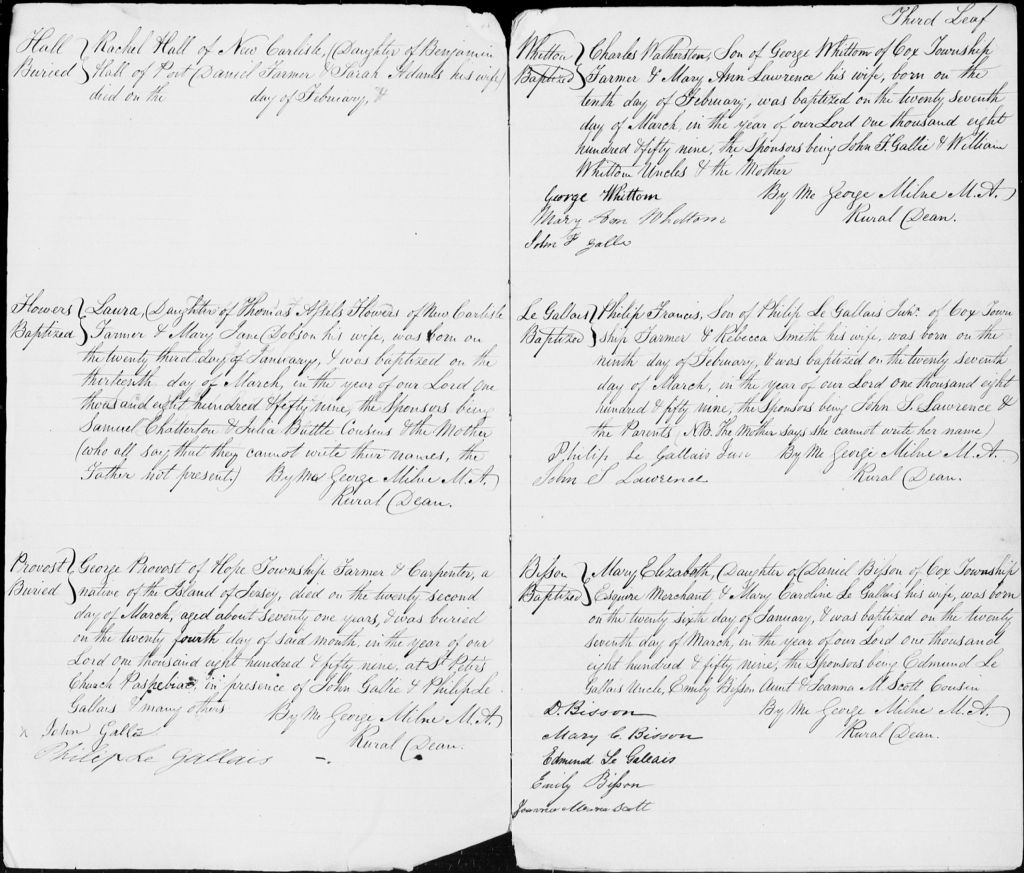 Hall Rachel Hall of New Carlisle, (Daughter of Benjamin
Buried Hall of Port Daniel Farmer & Sarah Adams his wife)
died on the day of February, &
Flowers Laura, Daughter of Thomas Flowers of New Carlisle
Baptized Farmer & Mary Jane Dobson his wife, was born on
the twenty third day of January, & was baptized on the
thirteenth day of March, in the year of our Lord one
thousand eight hundred & fifty nine, the Sponsors being
Samuel Chatterton & Julia Buttle Cousins & the Mother
(who all say that they cannot write their names, the
Father not present.) By Me George Milne M.A.
Rural Dean.
Provost George Provost of Hope Township Farmer & Carpenter, a
Buried native of the Island of Jersey, died on the twenty second
day of March, aged about seventy one years, & was buried
on the twenty fourth day of said month, in the year of our
Lord one thousand eight hundred & fifty nine, at St Peters
Church Paspebiac, in presence of John Gallie & Philip Le
Gallais & many others. By Me George Milne M.A.
x John Gallie Rural Dean.
Philip Le Gallais
Third Leaf
Whittom Charles Watherston, Son of George Whittom of Cox Township
Baptized Farmer & Mary Ann Lawrence his wife, born on the
tenth day of February, was baptized on the twenty seventh
day of March, in the year of our Lord one thousand eight
hundred & fifty nine, the Sponsors being John F. Gallie & William
Whittom Uncles & the Mother
George Whittom By Me George Milne M.A.
Mary Ann Whittom Rural Dean.
John F Galle
Le Gallais Philip Francis, Son of Philip Le Gallais Junr. of Cox Town
Baptized ship Farmer & Rebecca Smith his wife, was born on the
ninth day of February, & was baptized on the twenty seventh
day of March, in the year of our Lord one thousand eight
hundred & fifty nine, the Sponsors being John S. Lawrence &
the Parents (N.B. The Mother says she cannot write her name)
Philip Le Gallais Junr By Me George Milne M.A.
John S Lawrence Rural Dean.
Bisson Mary Elizabeth, Daughter of Daniel Bisson of Cox Township
Baptized Esquire Merchant & Mary Caroline Le Gallais his wife, was born
on the twenty sixth day of January, & was baptized on the twenty
seventh day of March, in the year of our Lord one thousand
eight hundred & fifty nine, the Sponsors being Edmund Le
Gallais Uncle, Emily Bisson Aunt & Joanna M. Scott Cousin
D. Bisson By Me George Milne M.A.
Mary C. Bisson Rural Dean.
Edmund Le Gallais
Emily Bisson
Joanna Scott